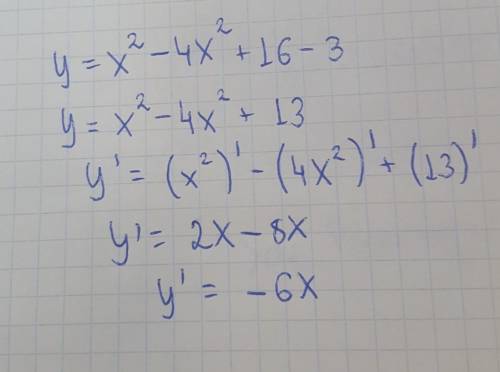 y = x² - 4x² + 16 - 3
y = x² - 4x² + 13
y' = (x²)' - (4x²)' + (13)'
y' = 2x - 8x
y' = -6x